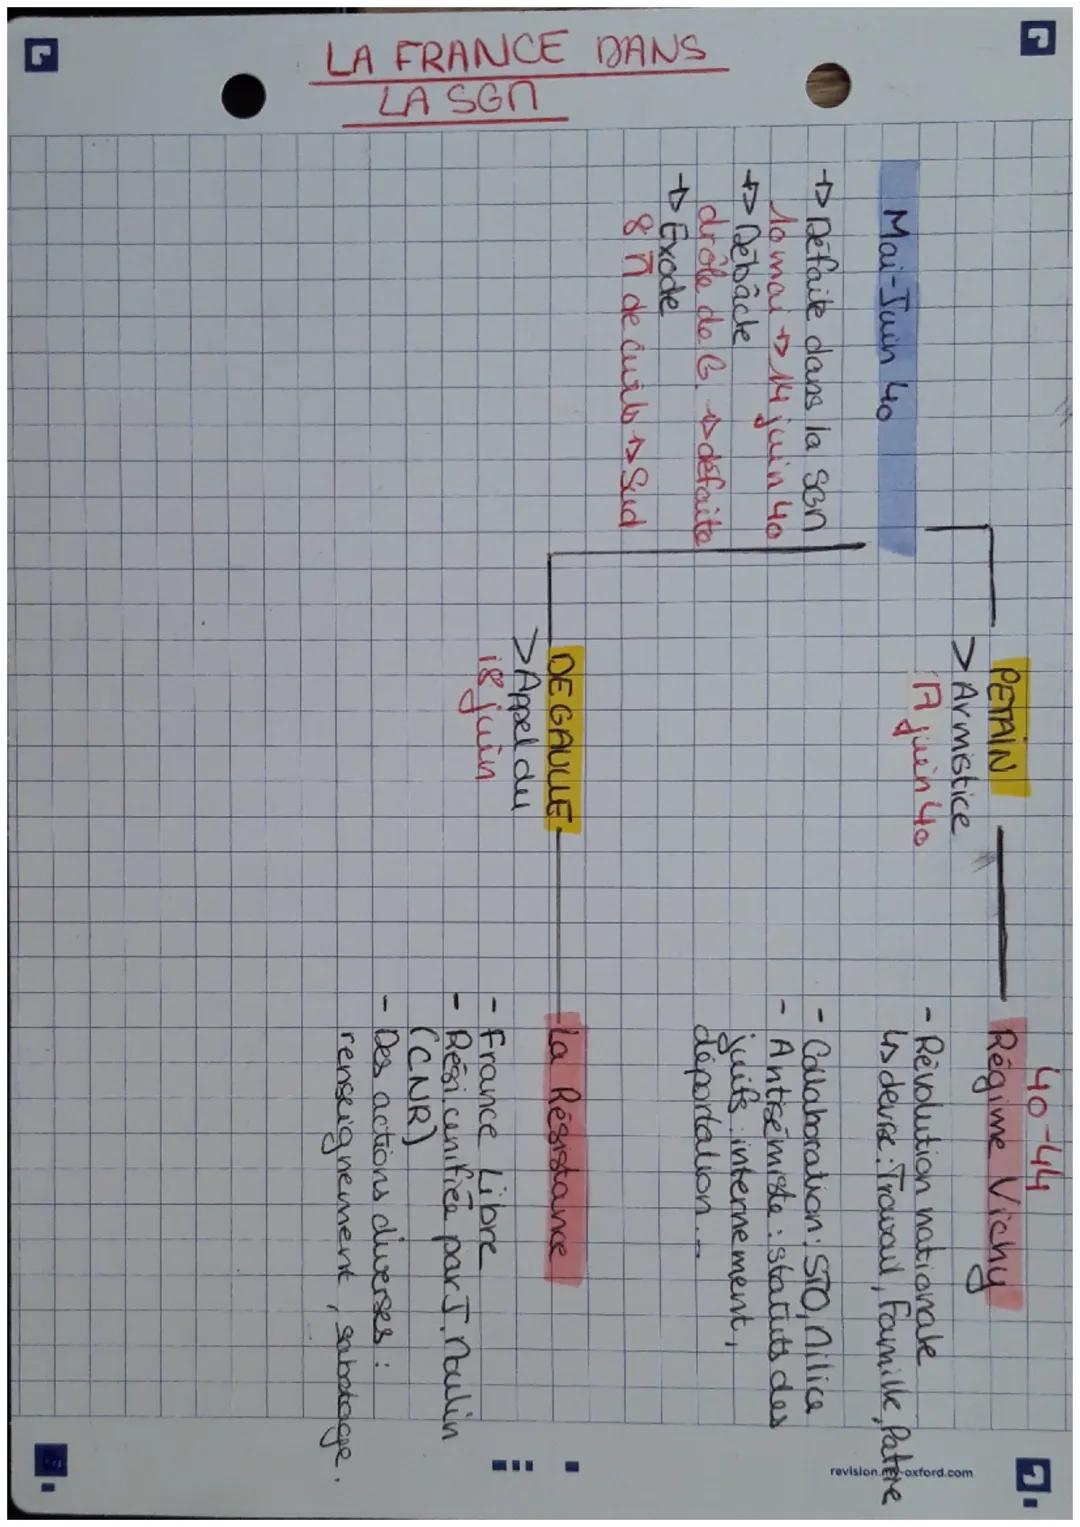 LA FRANCE DANS
LA SGM
Mai-Juin 40
→ Défaite dans la SGM
10 mai → 14 juin 40
→ Débâcle
drôle de G. → défaite
→ Exode
8 M de civils → Sud
PETAIN
> Armistice
17 juin 40
40-44
Régime Vichy
- Révolution nationale
↳ devise : Travail, Famille, Patrie
- Collaboration : STO, Milice
- Antisémiste : statuts des
juifs : internement,
déportation...
DE GAULLE
> Appel du
18 juin
La Résistance
- France Libre
- Rési. unifiée par J. Moulin
(CNR)
- Des actions diverses :
renseignement, sabotage.
revision.my-oxford.com